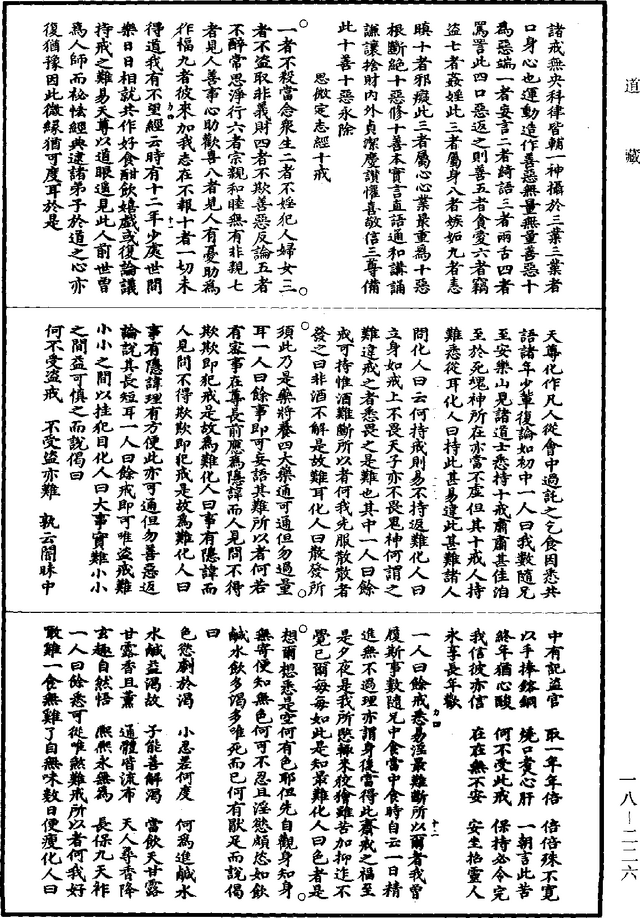 道藏
諸戒無央科律皆輔一神攝於三業三業者
口身心也運動造作善惡無量無量善惡十
為惡端一者妄言二者綺語三者兩舌四者
罵詈此四口惡返之則善五者貪愛六者竊
盜七者姦婬此三者屬身八者嫉妬九者恚
瞋十者邪癡此三者屬心心業最重為十惡
根斷絕十惡修十善本實言直語通和講誦
謙讓捨財內外貞潔慶讚懽喜敬信三尊備
此十善十惡永除
思微定志經十戒
一者不殺當念眾生二者不婬犯人婦女三
者不盜取非義財四者不欺善惡反論五者
不醉常思淨行六者宗親和睦無有非親七
者見人善事心助歡喜八者見人有憂助為
作福九者彼來加我志在不報十者一切未
得道我有不望經云時有十二年少處世間
樂日日相就共作好食酣飲嬉戲或復論議
持戒之難易天尊以道眼遙見此人前世曾
為人師而祕悋經典違諸弟子於道之心亦
復猶豫因此微緣猶可度耳於是
天尊化作凡人從會中過託之乞食因悉共
語諸年少輩復論如初中一人曰我數隨兄
至安樂山見諸道士悉持十戒肅肅甚佳泊
至於死魂神所在亦當不虛但其十戒人持
難悉從耳化人曰持此甚易違此甚難諸人
問化人曰云何持戒則易不持返難化人曰
立身如戒上不畏天子亦不畏鬼神何謂之
難違戒之者悉畏之是難也其中一人曰餘
戒可持惟酒難斷所以者何我先服散散者
發之曰非酒不解是故難耳化人曰散發所
須此乃是藥將養四大藥通可通但勿過量
耳一人曰餘事即可妄語其難所以者何若
有密事在尊長前應為隱諱而人見問不得
欺欺即犯戒是故為難化人曰事有隱諱而
人見問不得欺欺即犯戒是故為難化人曰
事有隱諱理有方便此亦可通但勿善惡返
論說其長短耳一人曰餘戒即可唯盜戒難
小小之間以挂犯目化人曰大事實難小小
之間益可慎之而說偈曰
何不受盜戒 不受盜亦難 孰云闇昧中
中有記盜官 取一年年倍 倍倍殊不寬
以手捧鎔銅 燒口煮心肝 一朝言此苦
終年猶心酸 何不受此戒 保持必令完
我信彼亦信 在在無不安 安坐招靈人
永享長年歡
一人曰餘戒悉易淫最難斷所以爾者我曾
履斯事數隨兄中食當中食時自云一日精
進無不過理亦謂身後當得此齋戒之福至
是夕夜是我所愍輒來狡獪雖苦加抑迮不
覺已爾每每如此是知最難化人曰色者是
想爾想悉是空何有色耶但先自觀身知身
無寄便知無色何可不忍且淫慾頗恣如飲
鹹水飲多渴多唯死而已何有猒足而說偈
曰
色慾劇於渴 小忍差何度 何為進鹹水
水鹹益渴故 子能善解渴 當飲天甘露
甘露香且薰 通體皆流布 天人尋香降
玄趣自然悟 熙熙永無為 長保九天祚
一人曰餘悉可從唯煞難戒所以者何我好
噉雞一食無雞了自無味數日便瘦化人曰
一八—二二六